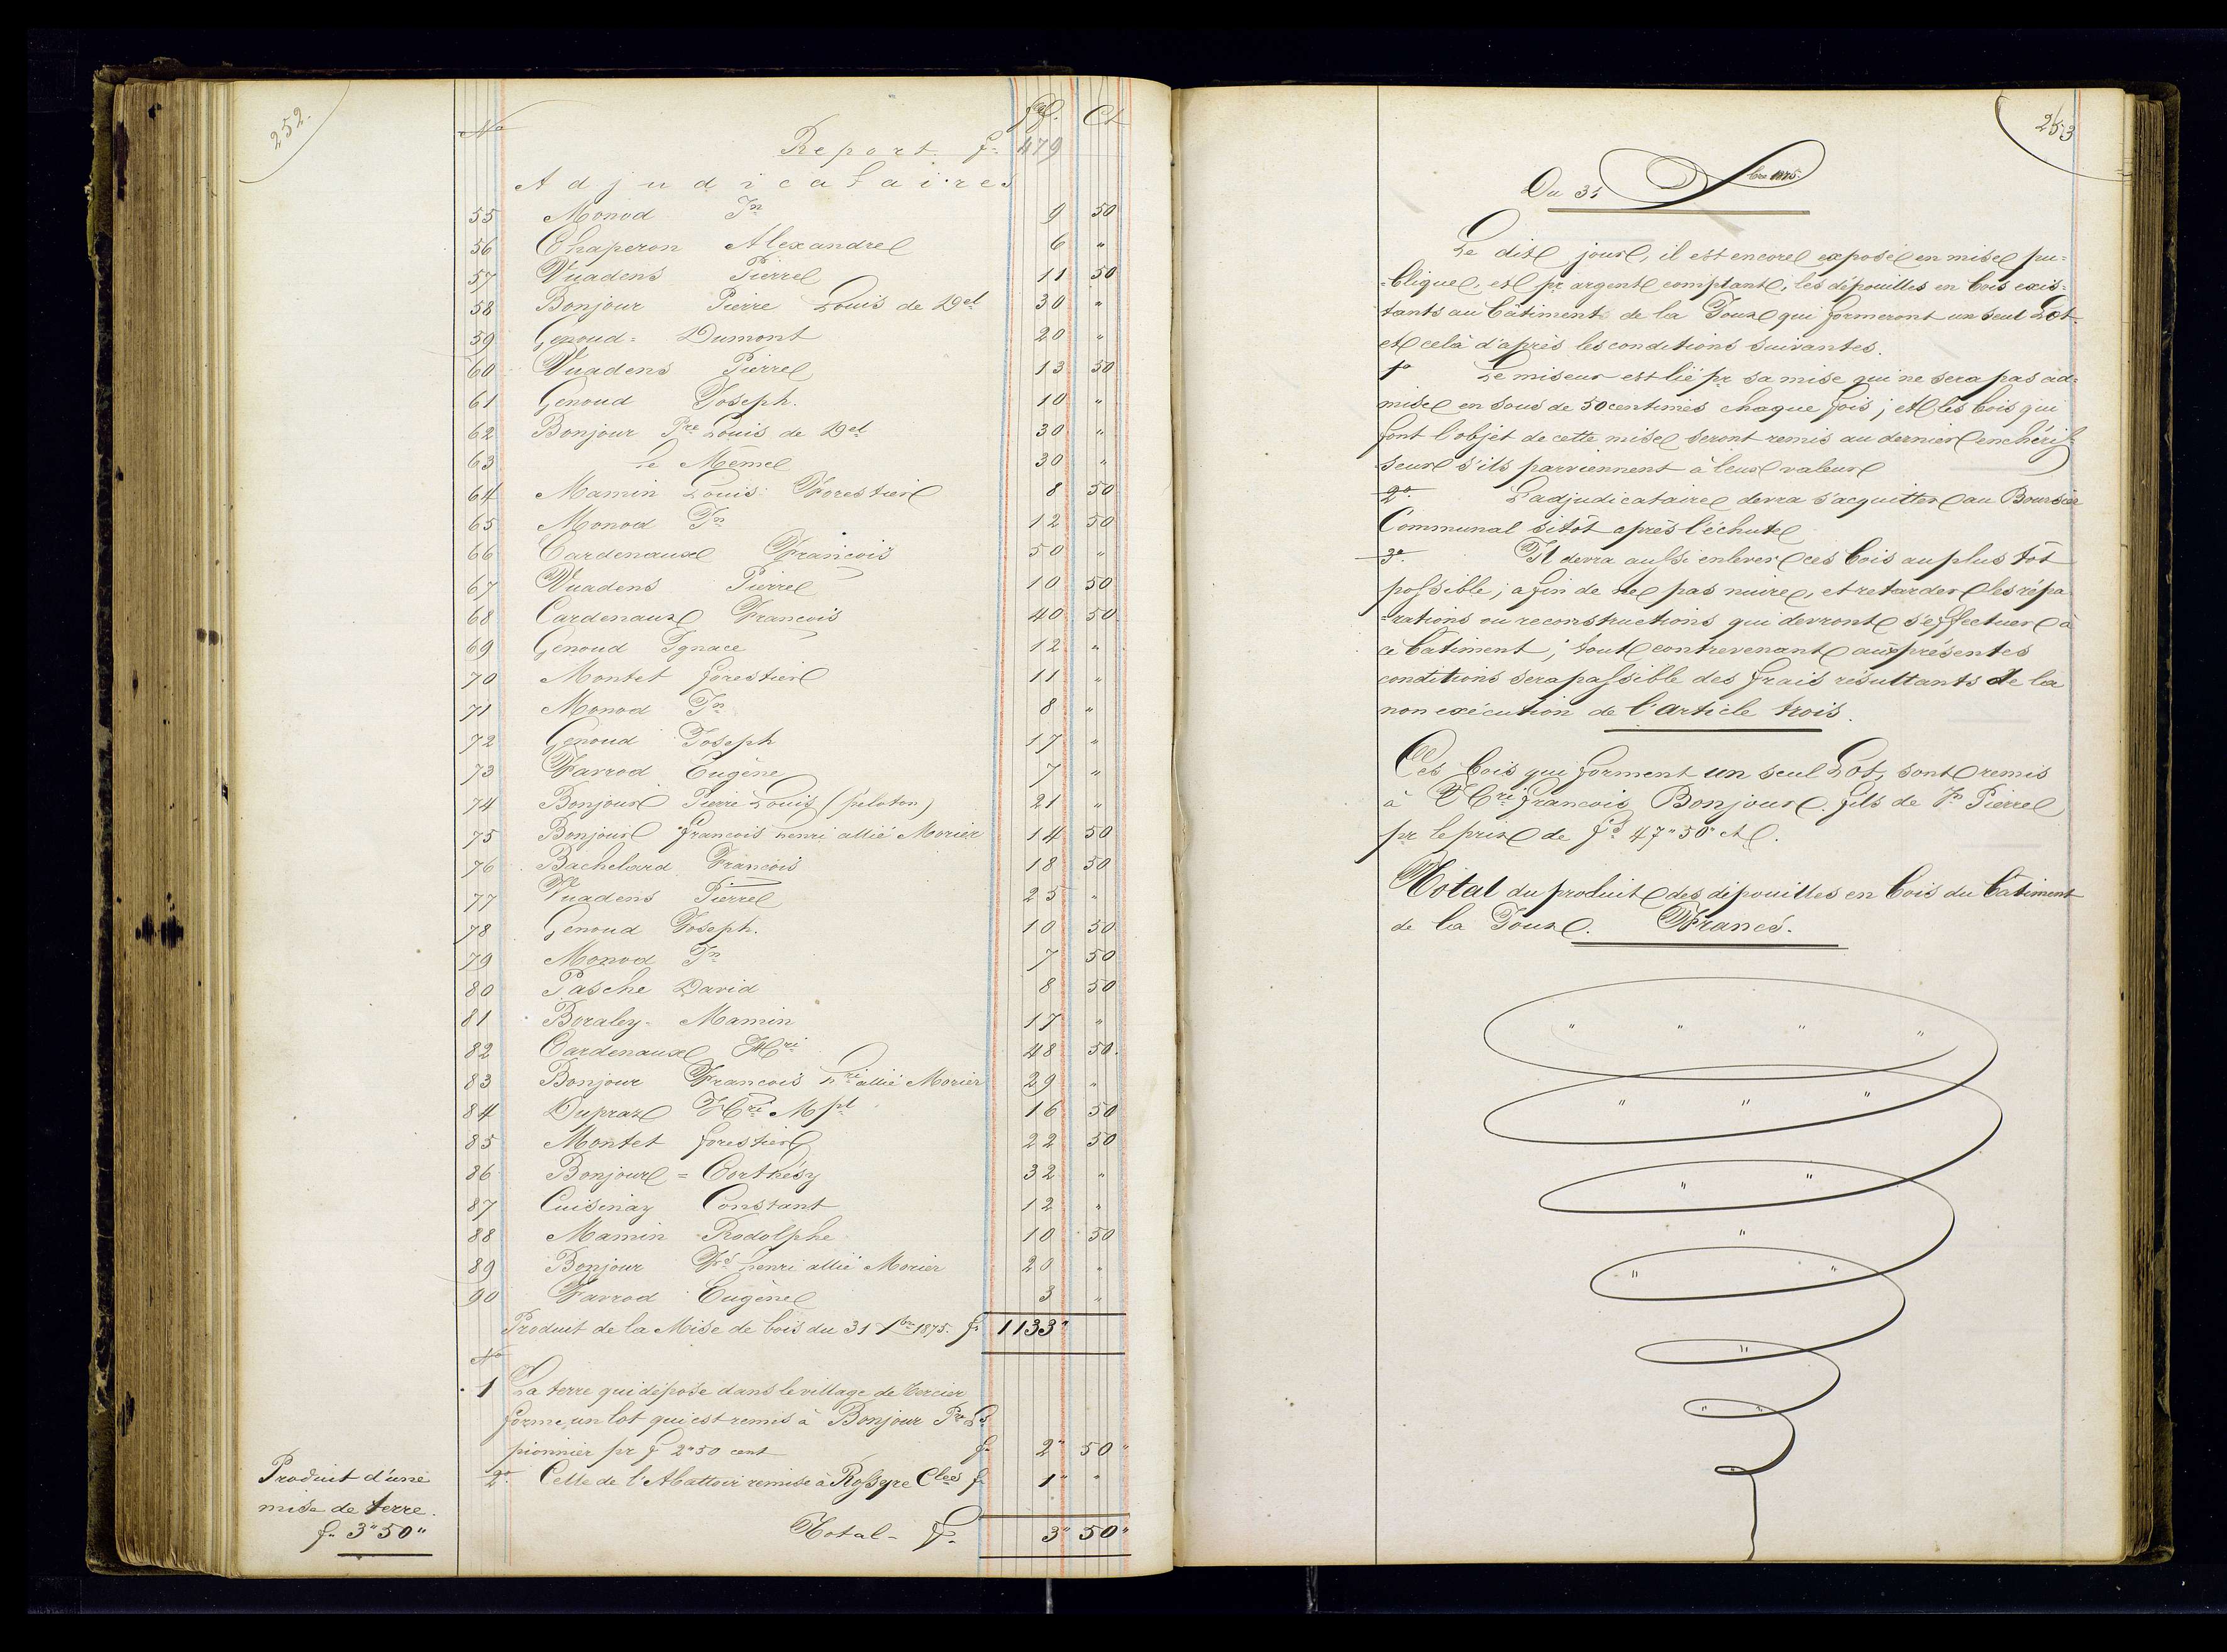 252.
No frs. Ct
Report. fr 479
Adjudicataires
55 Monod Jn 9 50
56 Chaperon Alexandre 6 "
57 Vuadens Pierre 11 50
58 Bonjour Pierre Louis de Del 30 "
59 Genoud = Dumont 20 "
60 Vuadens Pierre 13 50
61 Genoud Joseph. 10 "
62 Bonjour Pre Louis de Del 30 "
63 Le Même 30 "
64 Mamin Louis Forestier 8 50
65 Monod Jn 12 50
66 Cardenaux François 50 "
67 Vuadens Pierre 10 50
68 Cardenaux François 40 50
69 Genoud Ignace 12 "
70 Montet forestier 11 "
71 Monod Jn 8 "
72 Genoud Joseph 17 "
73 Favrod Eugène 7 "
74 Bonjour Pierre Louis (peloton) 21 "
75 Bonjour François henri allié Morier 14 50
76 Bachelard François 18 50
77 Vuadens Pierre 25 "
78 Genoud Joseph. 10 50
79 Monod Jn 7 50
80 Pasche David 8 50
81 Boraley = Mamin 17 "
82 Cardenaux Hri 48 50.
83 Bonjour François hri allié Morier 29 "
84 Dupraz Hri Mpl 16 50
85 Montet forestier 22 50
86 Bonjour = Corthésy 32 "
87 Cuisinay Constant 12 "
88 Mamin Rodolphe 10 50
89 Bonjour Fs henri allié Morier 20 "
90 Favrod Eugène 3 "
Produit de la Mise de bois du 31 Xbre 1875. fr 1133"
No
1 La terre qui dépose dans le village de Cercier
forme un lot qui est remis à Bonjour Pre Ls
pionnier pr f 2"50 cent fr 2" 50"
2o. Celle de l'Abattoir remise à Rossyre Cles fr 1" "
Total = fr. 3" 50"
Produit d'une
mise de terre.
fr. 3"50"
253
Du 31 Xbre 1875.
Le dit jour, il est encore exposé en mise pu=
=blique, et pr argent comptant, les dépouilles en bois exis=
tants au bâtiment de la Tour qui formeront un seul Lot.
et celà d'après les conditions suivantes.
1o Le miseur est lié pr sa mise qui ne sera pas ad=
mise en sous de 50 centimes chaque fois; et les bois qui
font l'objet de cette mise seront remis au dernier enchéris=
seur s'ils parviennent à leur valeur
2o. L'adjudicataire devra s'acquitter au Boursier
Communal sitôt après l'échute
3o. Il devra aussi enlever ces bois au plus tôt
possible; afin de ne pas nuire, et retarder les répa
=rations ou reconstructions qui devront s'effectuer à
ce bâtiment; tout contrevenant aux présentes
conditions sera passible des frais résultants de la
non exécution de l'article trois.
Ces bois qui forment un seul Lot, sont remis
à Hri françois Bonjour. fils de Jn Pierre
pr le prix de fs 47"50" ct.
Total du produit des dépouilles en bois du bâtiment
de la Tour. Francs.